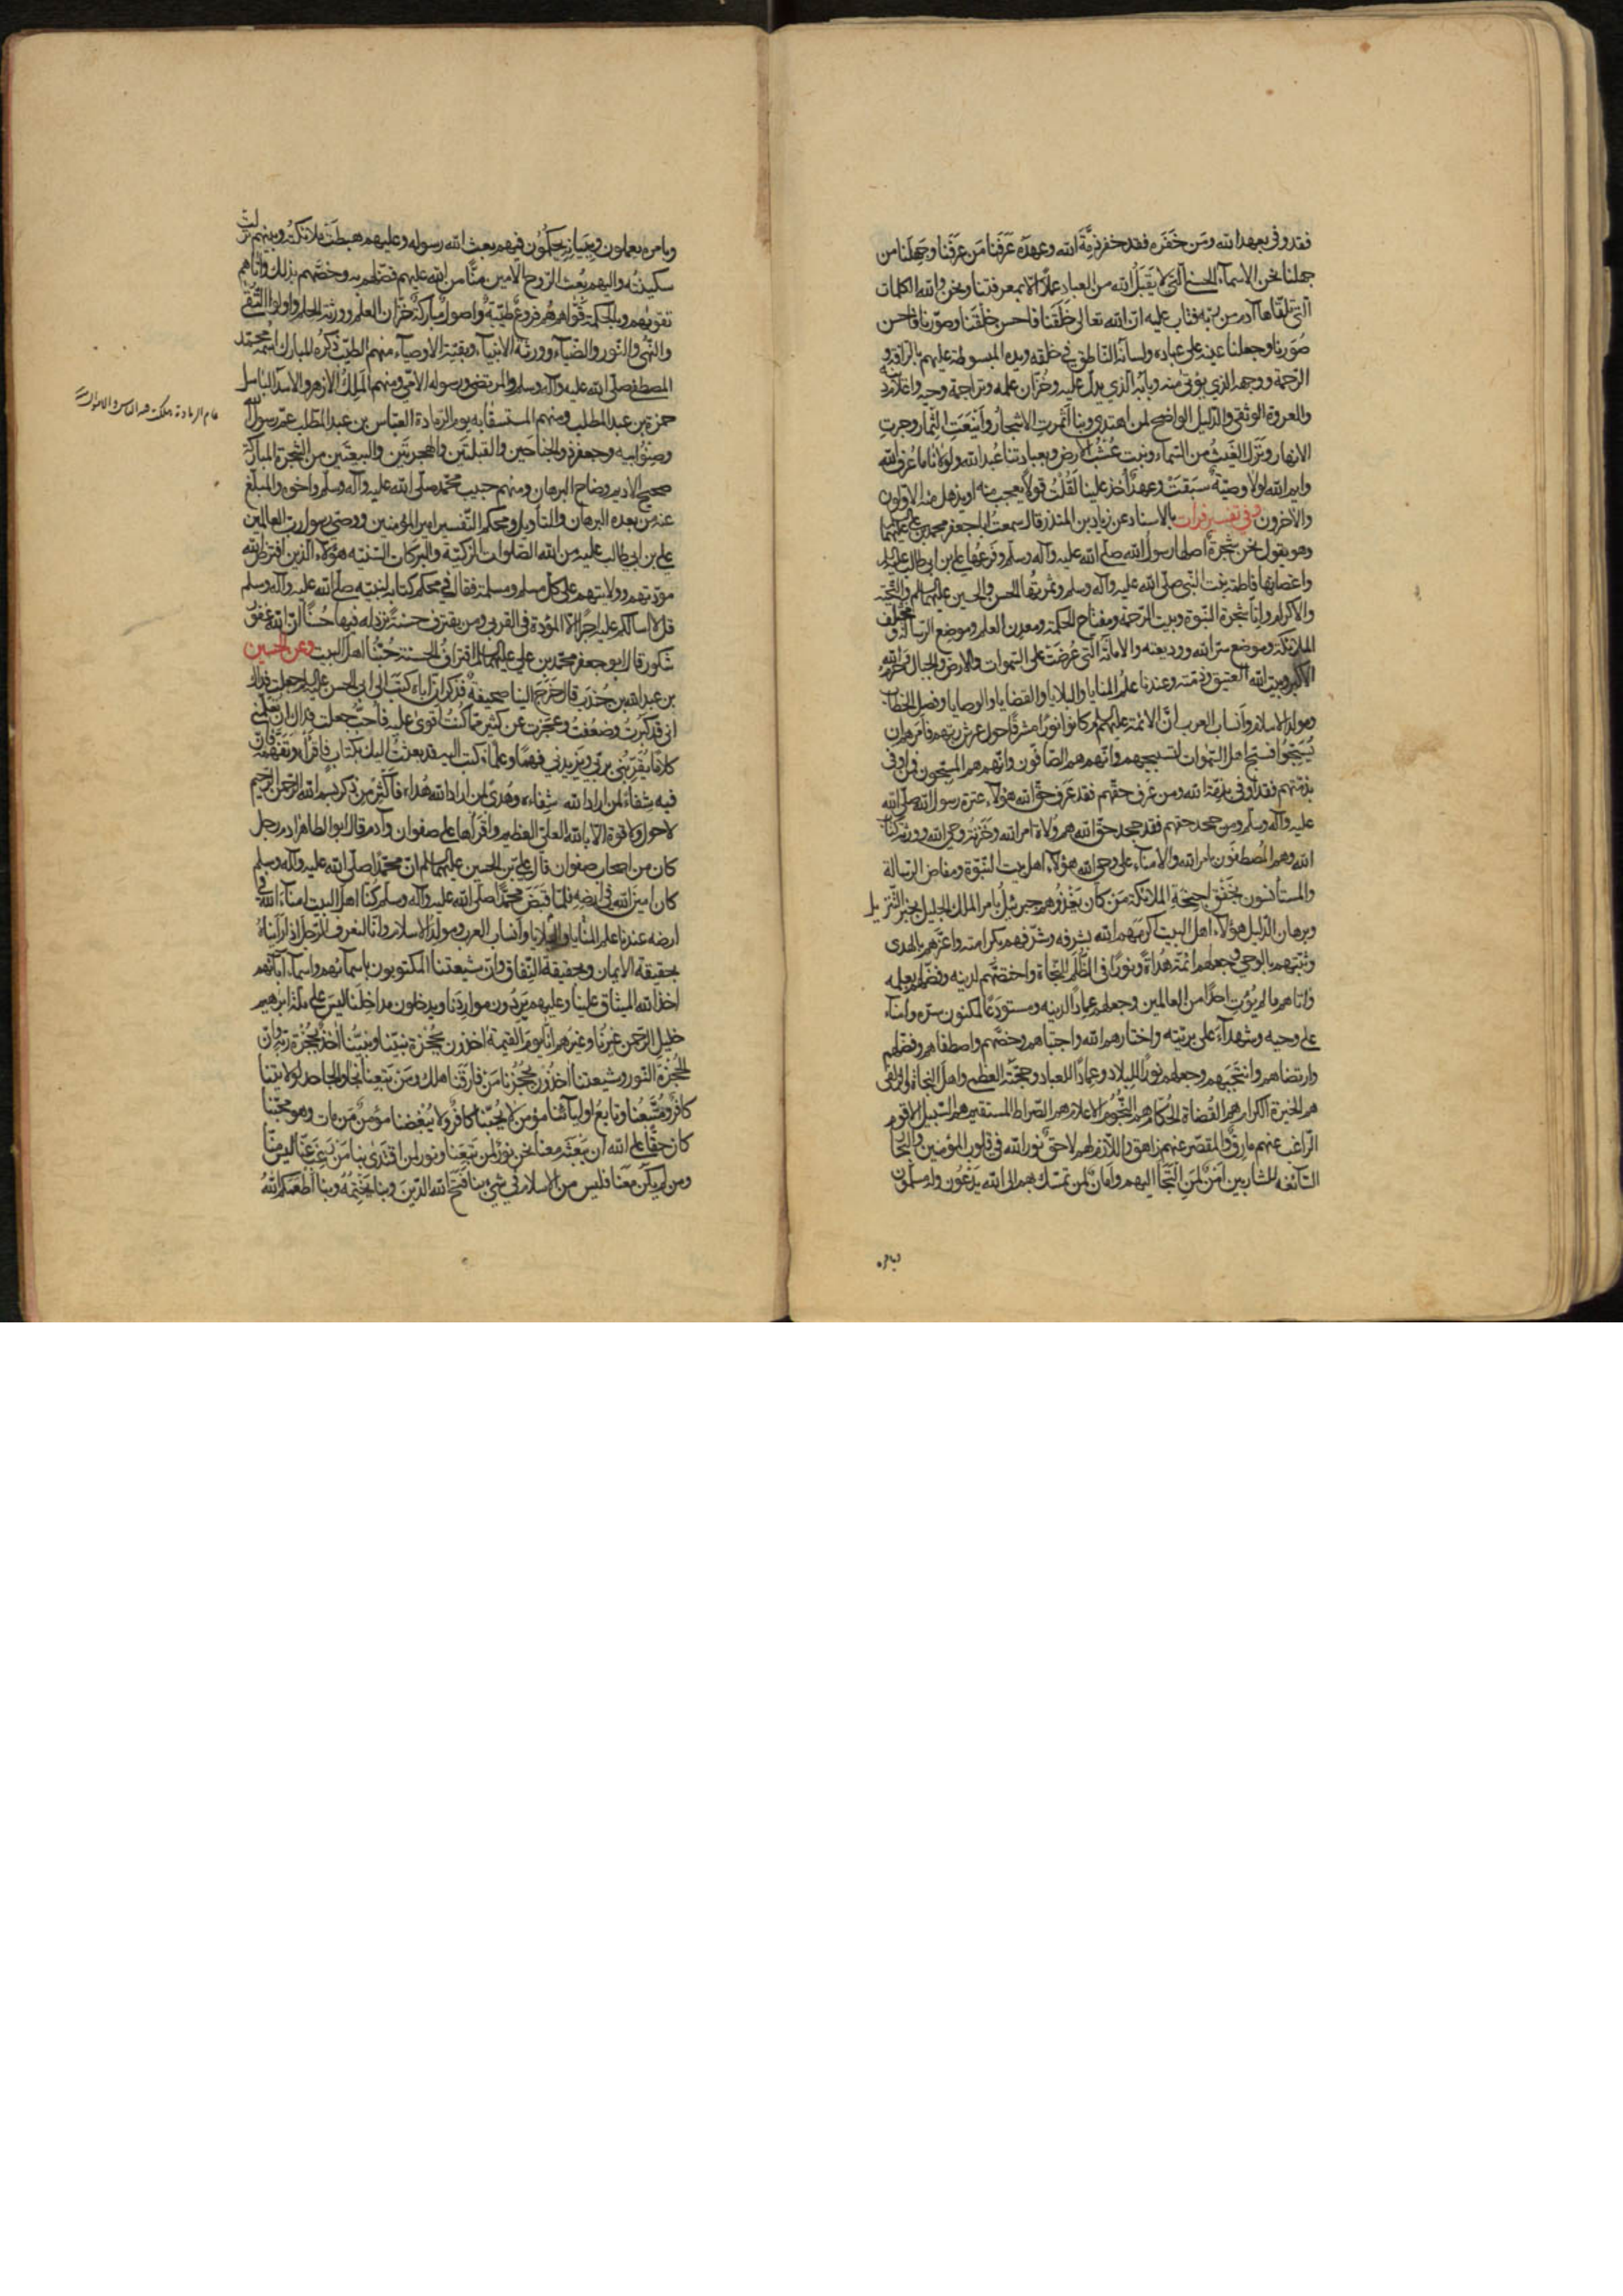 فقد وفى بعهد الله ومن خفره فقد خفر ذمّة الله وعهده عَرَفَنا مَن عَرَفَنا وجَهِلَنا من
جهلنا نحن الاسمآء الحسنى الّتى لا يَقبَلُ الله من العباد عملًا الّا بمعرفتنا ونحن والله الكلمات
الّتى تلقّاها آدم من ربّه فتاب عليه انّ الله تعالى خَلَقَنا فاحسن خَلْقَنا وصوّرنا فاحسن
صُوَرنا وجعلنا عينه على عباده ولسانه الناطق في خلقه ويده المبسوطة عليهم بالرأفة و
الرّحمة ووجهه الذي يؤتى منه وبابه الّذي يدلّ عليه وخُزّان علمه وتراجمة وحيه واعلام دينه
والعروة الوثقى والدّليل الواضح لمن اهتدى وبنا أثمرتِ الاشجارُ وأَينَعَتِ الثّمار وجرتِ
الانهار ونَزَلَ الغَيثُ من السّمآء ونبت عُشْبُ الارض وبعبادتنا عُبد الله ولولانا ما عُرف الله
وايم الله لولا وصيّةٌ سبَقَتْ وعهدٌ أُخذ علينا لقُلْتُ قولًا يعجب منه او يذهل منه الاوّلون
والآخرون وفى تفسير فرات بالاسناد عن زياد بن المنذر قال سمعتُ ابا جعفر محمد بن علي عليهما
وهو يقول نحن شجرةٌ اصلها رسول الله صلى الله عليه وآله وسلم وفَرعُها علي بن ابي طالب عليه
واغصانها فاطمة بنت النّبى صلّى الله عليه وآله وسلم وثمرتُها الحسن والحسين عليهما السلم والتحيّة
والاكرام وانّا شجرة النّبوة وبيت الرّحمة ومفتاح الحكمة ومعدن العلم وموضع الرّسالة ومختلف
الملائكة وموضع سرّ الله ووديعته والامانة الّتى عُرضَت على السّموات والارض والجبال وحَرَم الله
الاكبر وبيت الله العتيق وذمّته وعندنا علم المنايا والبلايا والقضايا والوصايا وفصل الخطاب
ومولد الاسلام وأنساب العرب انّ الائمة عليهم كانوا نورًا مشرقًا حول عرش ربّهم فأمرهم ان
يُسبّحوا فسبّح اهل السّموات لتسبيحهم وانّهم هم الصّافّون وانّهم هم المسبّحون فمن اوفى
بذمّتهم فقد اوفى بذمّة الله ومن عَرف حقّهم فقد عَرف حقّ الله هؤلآء عترة رسول الله صلى الله
عليه وآله وسلّم ومن جحد حقهم فقد جحد حقّ الله هم وُلاة امر الله وخَزَنة وحى الله وورثة كتاب
الله وهم المُصطفَون بامر الله والامنآء على وحى الله هؤلآء اهل بيت النّبوّة ومفاض الرّسالة
والمستأنسون بخَفْق اجنحةِ الملائكة مَن كان يَغْذُوهم جبرئيل بامر الملك الجليل بخبر التّنزيل
وبرهان الدّليل هؤلآء اهل البيت اكرمهم الله بشرفه وشرّفهم بكرامته واعزّهم بالهدى
وثبّتهم بالوحى وجعلهم ائمّة هُداةً ونورًا فى الظُلَم للنّجاة واختصّهم لدينه وفضّلهم بعلمه
وآتاهم ما لم يُؤتِ احدًا من العالمين وجعلهم عمادًا لدينه ومستودَعًا لمكنون سرّه وامناء
على وحيه وشهدآءَ على بريّته واختارهم الله واجتباهم وخصّهم واصطفاهم وفضّلهم
وارتضاهم وانتجبهم وجعلهم نورًا للبلاد وعمادًا للعباد وحجّته العظمى واهل النجاة والزلفى
هم الخيرة الكرام هم القُضاة الحُكّام هم النّجوم الاعلام هم الصّراط المستقيم هم السّبيل الاقوم
الرّاغب عنهم مارِقٌ والمقصّر عنهم زاهق واللّازم لهم لاحقٌ نور الله في قلوب المؤمنين والبحار
السّائغة للشاربين أمنٌ لمن التجأ اليهم وأمانٌ لمن تمسّك بهم الى الله يَدْعُون وله يسلّمون
وبامره
وبامره يعملون وببيانه يحكمون فيهم بعث الله رسوله وعليهم هبطَت ملائكته وبينهم نزلت
سكينته واليهم بُعث الرّوح الامين منًّا من الله عليهم فضّلهم به وخصّهم بذلك وآتاهم
تقويهم وبالحكمة قوّاهم هم فروعٌ طيّبةٌ واصولٌ مباركةٌ خزّان العلم وورثة الحلم واولو التُّقى
والنُّهى والنّور والضّيآء وورثة الانبيآء وبقيّة الاوصيآء منهم الطيّب ذكره المبارك اسمه محمّد
المصطفى صلّى الله عليه وآله وسلم والمرتضى ورسوله الامّي ومنهم المَلِكُ الازهر والاسد الباسل
حمزة بن عبد المطلب ومنهم المستسقا به يوم الرّمادة العبّاس بن عبد المطلب عمّ رسول الله
وصنو ابيه وجعفر ذو الجناحين والقبلتَين والهجرتَين والبيعتَين من الشجرة المباركة
صحيح الاديم وضاح البرهان ومنهم حبيب محمّد صلّى الله عليه وآله وسلّم واخوه والمبلّغ
عنه من بعده البرهان والتأويل ومحكم التّفسير امير المؤمنين ووصى رسول ربّ العالمين
علي بن ابي طالب عليه من الله الصّلوات الزكيّة والبركات السّنيّة هؤلآء الّذين افترض الله
مودّتهم وولايتهم على كلّ مسلم ومسلمة فقال في محكم كتابه لنبيّه صلى الله عليه وآله وسلم
قل لا اسألكم عليه اجرًا الّا المودّة فى القربى ومن يقترف حسنةً نزد له فيها حُسنًا انّ الله غفورٌ
شكور قال ابو جعفر محمّد بن علي عليهما السلم اقترافُ الحسنة حُبّنا اهل البيت وعن الحسين
بن عبد الله بن جُندَب قال خَرَجَ الينا صحيفةٌ فذكر انّ اباه كتَب الى ابى الحسن عليه جعلت فداك
انى قد كَبرتُ وضعُفتُ وعجزت عن كثير ممّا كُنتُ اقوى عليه فأُحبّ جعلت فداك ان تعلّمنى
كلامًا يُقرّبنى بربّى ويَزيدنى فهمًا وعلمًا فكتب اليه قد بعثتُ اليك بكتاب فاقرأه وتفهّمه فانّ
فيه شفاءً لمن اراد الله شفاءه وهُدًى لمن اراد الله هُداه فأكثِر من ذكر بسم الله الرّحمن الرّحيم
لا حول ولا قوة الّا بالله العليّ العظيم واقرأها على صفوان وآدم قال ابو الطاهر آدم رجل
كان من اصحاب صفوان قال عليّ بن الحسين عليهما السلم انّ محمّدًا صلّى الله عليه وآله وسلم
كان امينَ الله فى أرضه فلمّا قبضَ محمّدًا صلّى الله عليه وآله وسلم كُنّا اهل البيت امنآءَ الله فى
ارضه عندنا علم المنايا والبلايا وأنساب العرب ومولد الاسلام وانّا لنعرف الرّجل اذا رأيناه
بحقيقة الايمان وبحقيقة النّفاق وانّ شيعتنا المكتوبون باسمآئهم واسمآء آبائهم
اخذ الله الميثاق علينا وعليهم يَرِدُون مواردَنا ويدخلون مداخلَنا ليسَ على ملّة ابرهيم
خليلِ الرّحمن غيرُنا وغيرُهم انّا يوم القيمة آخذون بحُجْزة نبيّنا ونبيُّنا آخذٌ بحُجْزة ربّه وانّ
الحُجْزة النّور وشيعتنا آخذون بحُجَزنا مَنْ فارقَنا هلك ومَن تبعنا نجا والجاحد لولايتنا
كافرٌ ومتّبعنا وتابعُ اوليآئنا مؤمن لا يُحبّنا كافرٌ ولا يُبغضنا مؤمنٌ من مات وهو محبّنا
كان حقًّا على الله ان يَبعثه معنا نحن نورٌ لمن تَبِعَنا ونور لمن اقتدى بنا مَن رَغِبَ عنّا ليس منّا
ومن لم يكن مَعَنا فليس من الاسلام فى شيء بنا فتح الله الدّينَ وبنا يَخْتِمُهُ وبنا اَطعَمَكم اللهُ
عام الرمادة هلكت فيه الناس والاموال